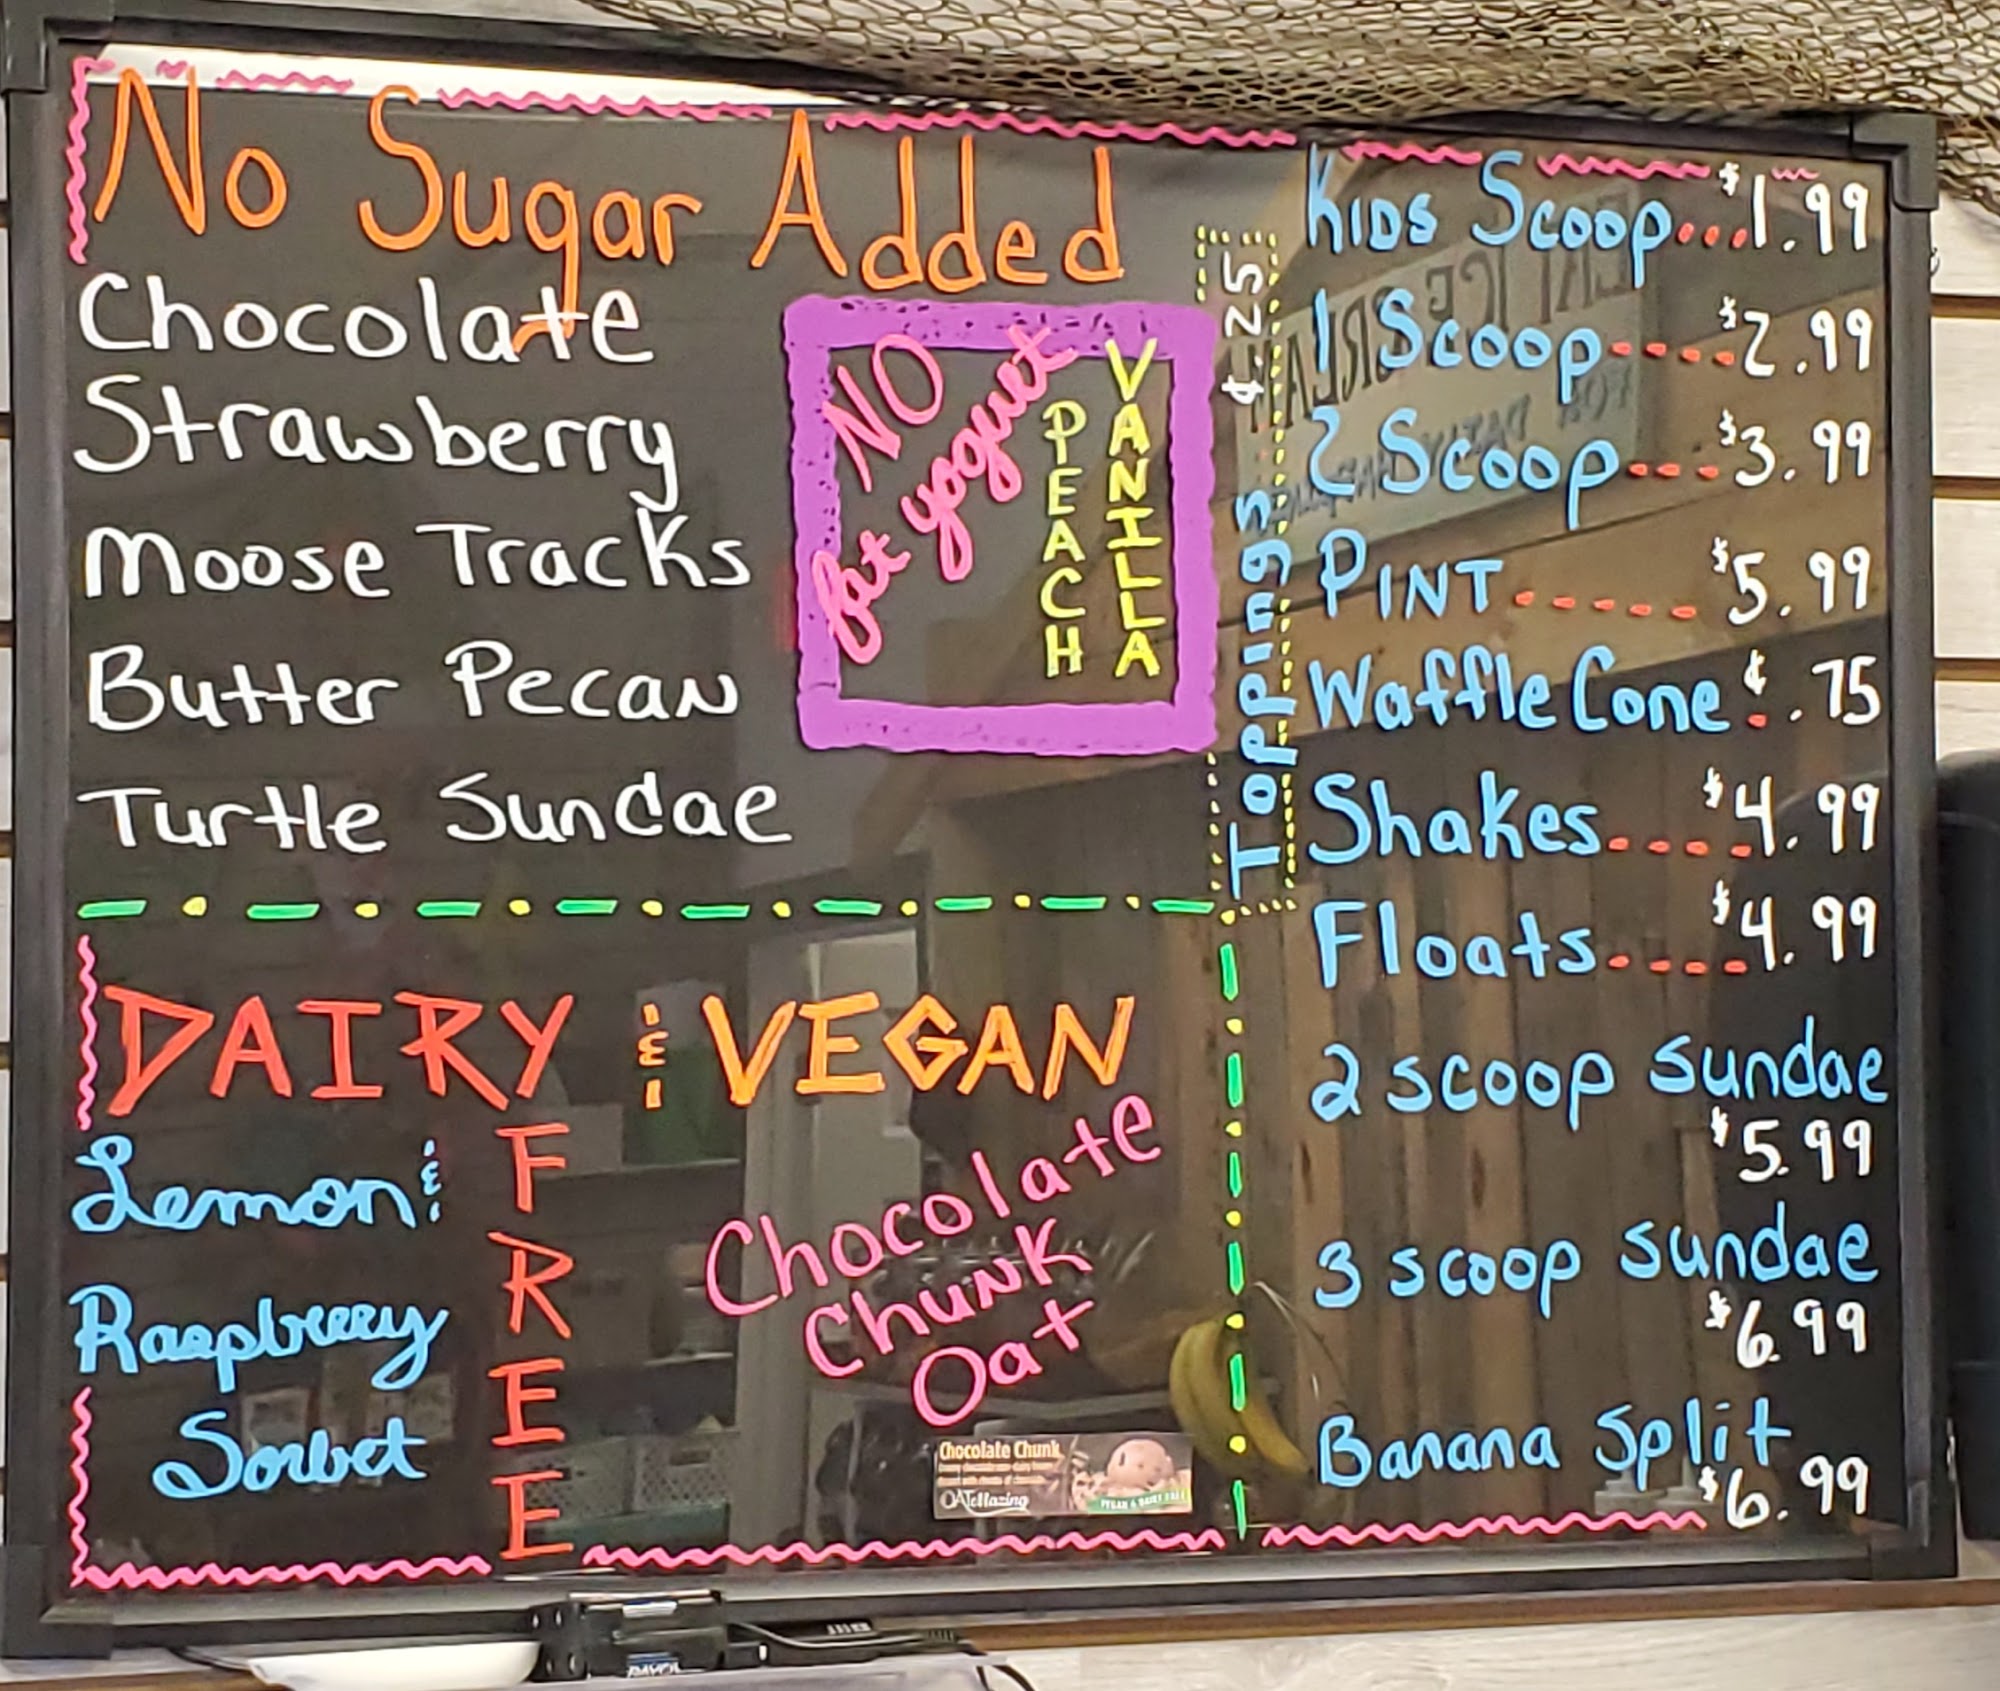 No Sugar Added
Chocolate
Strawberry
Moose Tracks
Butter Pecan
Turtle Sundae
NO
fat yoguet
PEACH
VANILLA
Toppings ¢.25
Kids Scoop...$1.99
1 Scoop----$2.99
2 Scoop---$3.99
PINT-----$5.99
Waffle Cone ¢.75
Shakes----$4.99
Floats----$4.99
2 scoop sundae
$5.99
3 scoop sundae
$6.99
Banana Split
$6.99
DAIRY & VEGAN
FREE
Lemon &
Raspberry
Sorbet
Chocolate
Chunk
Oat
Chocolate Chunk
OATeMazing
VEGAN & DAIRY FREE
EAT ICE CREAM